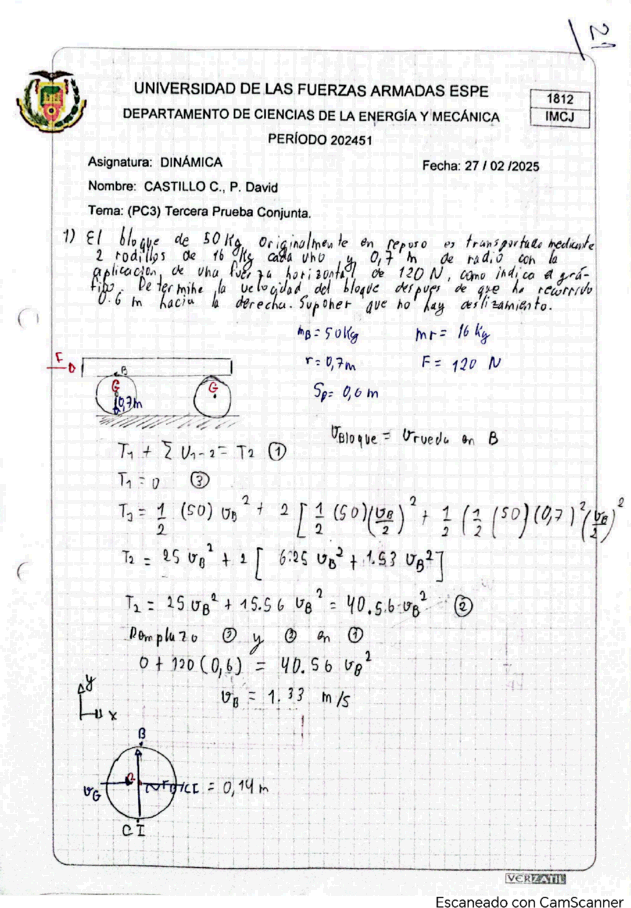 21
UNIVERSIDAD DE LAS FUERZAS ARMADAS ESPE
DEPARTAMENTO DE CIENCIAS DE LA ENERGÍA Y MECÁNICA
1812
IMCJ
PERÍODO 202451
Asignatura: DINÁMICA
Fecha: 27 / 02 /2025
Nombre: CASTILLO C., P. David
Tema: (PC3) Tercera Prueba Conjunta.
1) El bloque de 50 Kg, originalmente en reposo es transportado mediante
2 rodillos de 16 kg cada uno y 0,7 m de radio con la
aplicación de una fuerza horizontal de 120 N, como indica el grá-
fico. Determine la velocidad del bloque despues de que ha recorrido
0.6 m hacia la derecha. Suponer que no hay deslizamiento.
mB = 50 kg
mr = 16 kg
r = 0,7m
F = 120 N
Sp = 0,6 m
F
B
G
G
0,7m
υBloque = υrueda en B
T1 + Σ U1-2 = T2 ①
T1 = 0 ③
T2 = 1/2 (50) υB² + 2 [ 1/2 (50) (υB/2)² + 1/2 (1/2 (50) (0,7)² (υB/2)²
T2 = 25 υB² + 2 [ 6.25 υB² + 1.53 υB² ]
T2 = 25 υB² + 15.56 υB² = 40.56 υB² ②
0 + 120 (0,6) = 40.56 υB²
υB = 1.33 m/s
y
x
B
υG
= 0,14 m
CI
VERZATIL
Escaneado con CamScanner